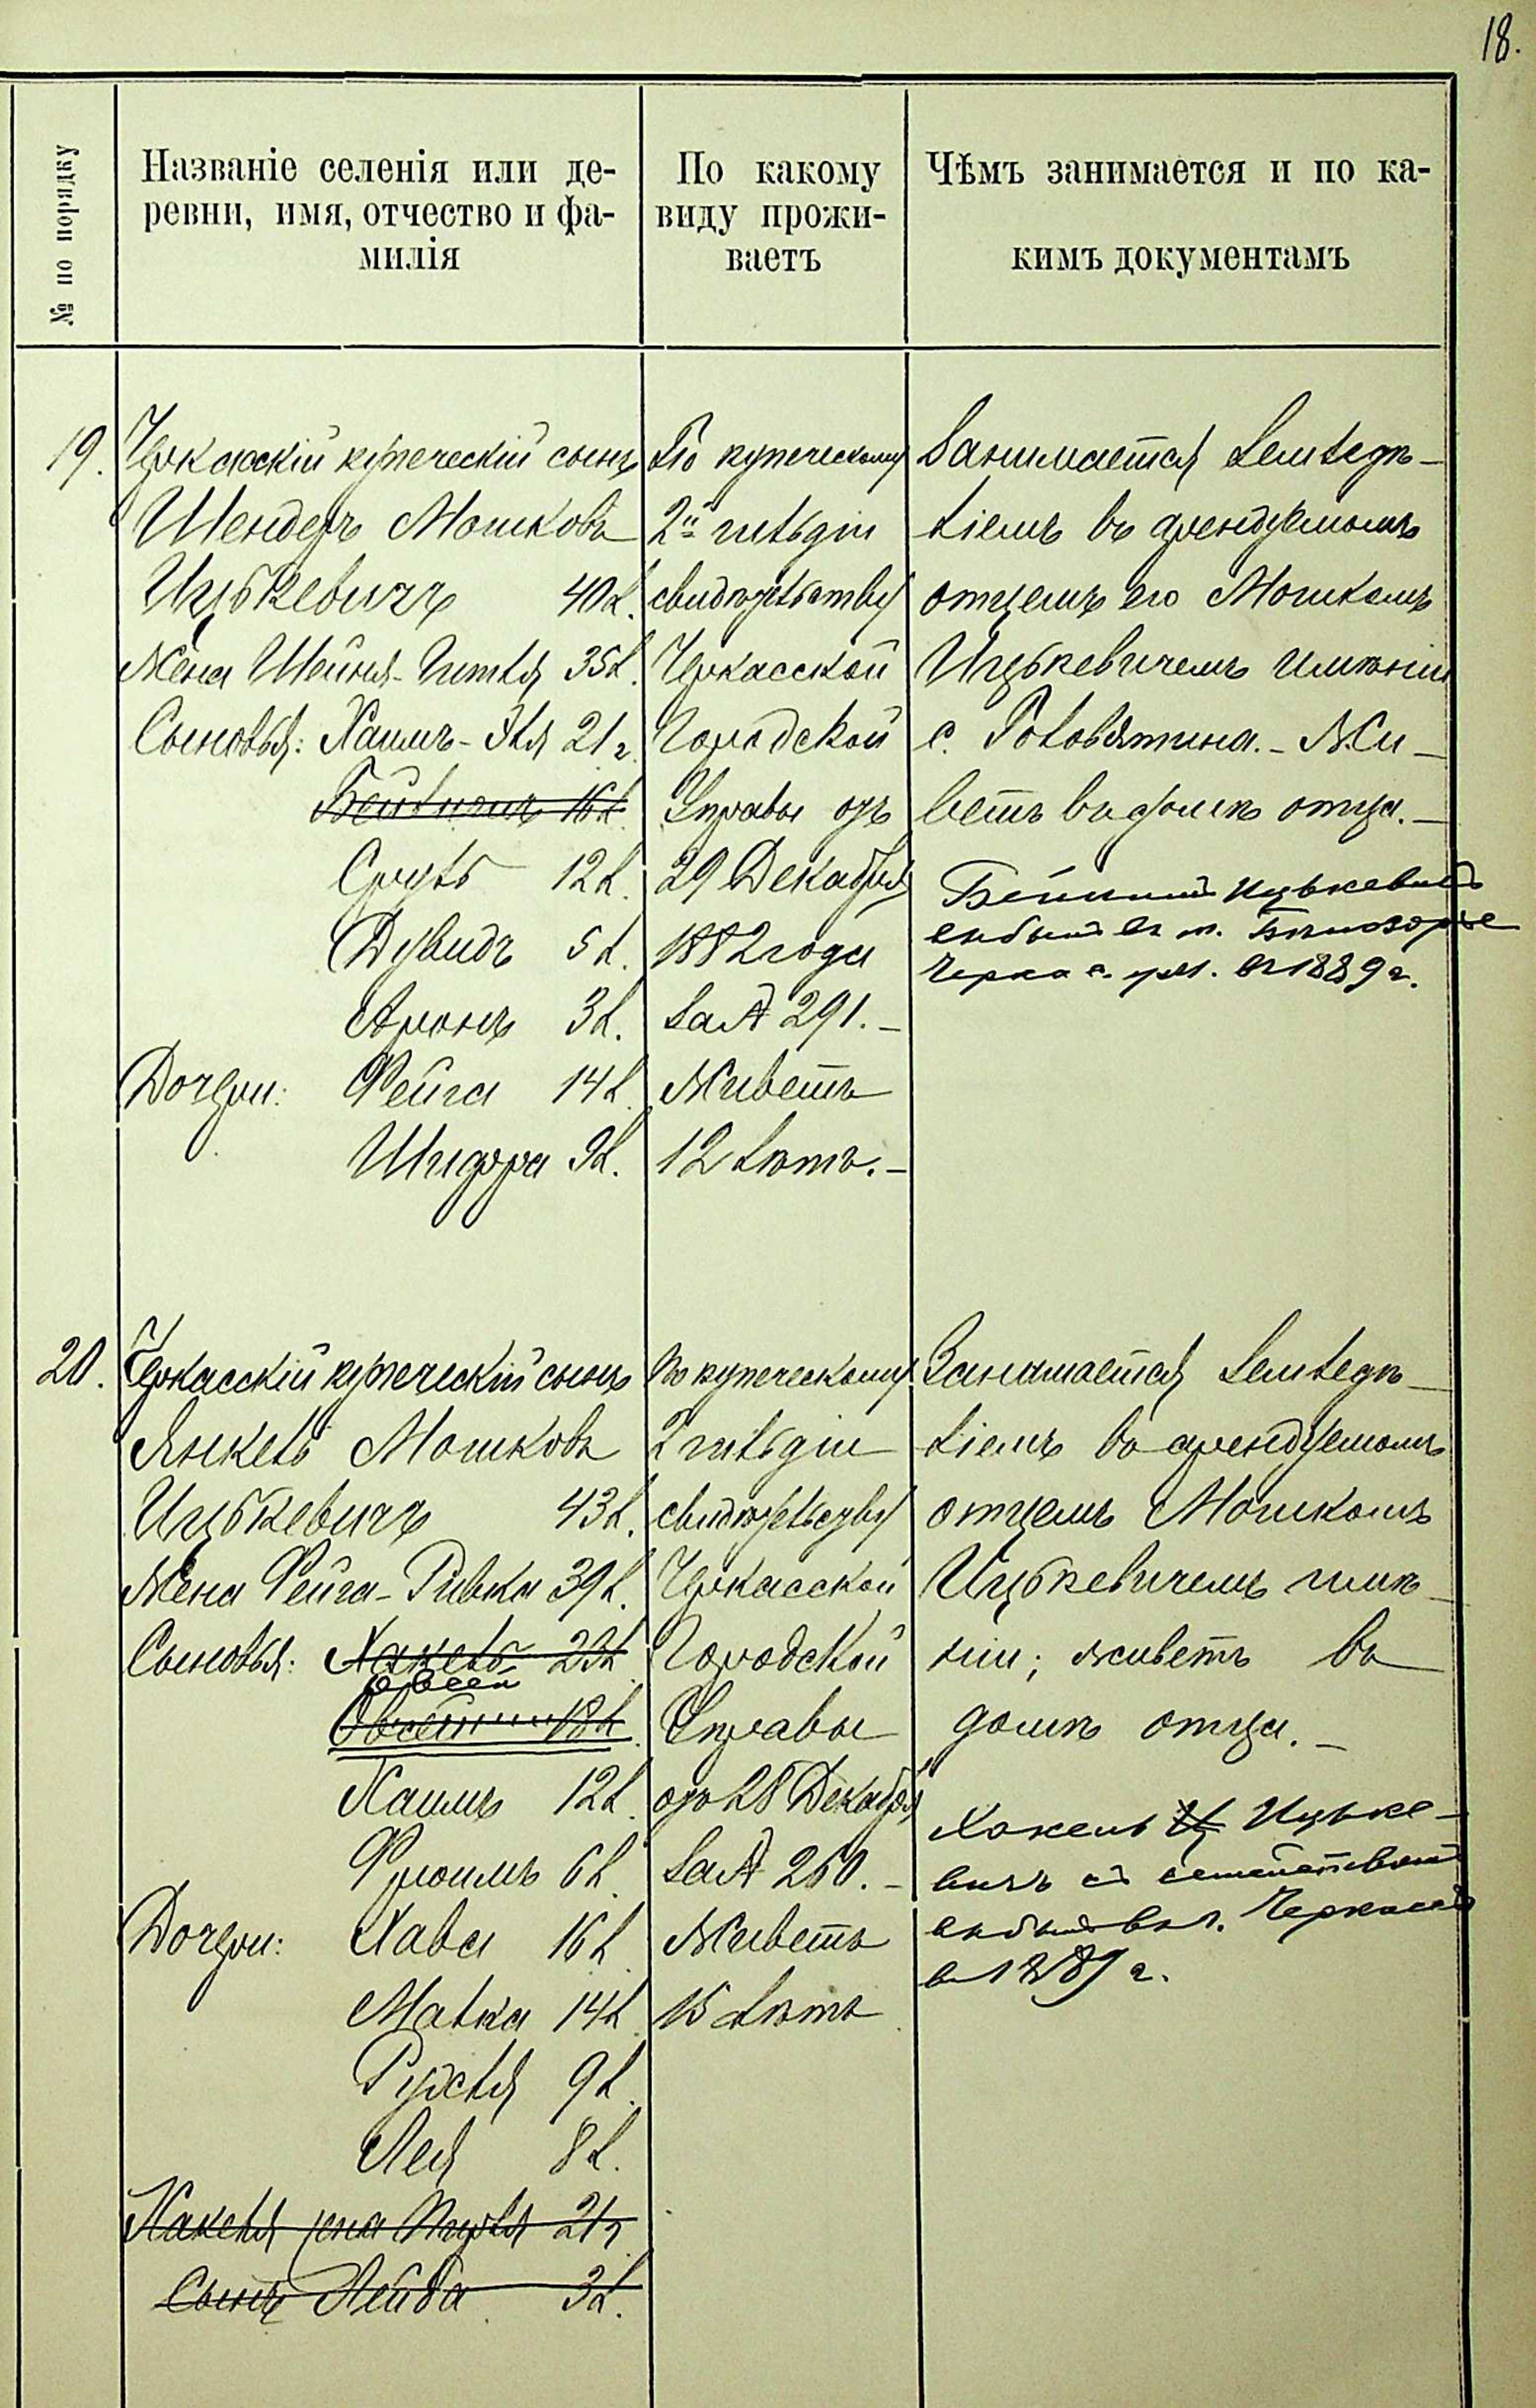 18.
№ по порядку
Названіе селенія или де-
ревни, имя, отчество и фа-
милія
По какому
виду прожи-
ваетъ
Чѣмъ занимается и по ка-
кимъ документамъ
19.
Черкасскій купеческій сынъ
Шендеръ Мошковъ
Ицькевичъ 40 л.
Жена Шейня-Гитля 35 л.
Сыновья: Хаимъ-Эля 21 г.
16 л.
Сруль 12 л.
Дувидъ 5 л.
Аронъ 3 л.
Дочери: Фейга 14 л.
Шифра 9 л.
По купеческому
2й гильдіи
свидѣтельству
Черкасской
Городской
Управы отъ
29 Декабря
1882 года
за № 291.-
Живетъ
12 лѣтъ.-
Занимается земледѣ-
ліемъ въ арендуемомъ
отцемъ его Мошкомъ
Ицькевичемъ имѣніи
с. Головятина.- Жи-
ветъ въ домѣ отца.-
Ицькевичъ
выбылъ въ м. Бѣлозорье
Черкас. уѣз. въ 1889 г.
20.
Черкасскій купеческій сынъ
Янкель Мошковъ
Ицькевичъ 43 л.
Жена Фейга-Ривка 39 л.
Сыновья: Хакель 23 л.
Овсей
18 л.
Хаимъ 12 л.
Фроимъ 6 л.
Дочери: Хава 16 л.
Малка 14 л.
Рухля 9 л.
Лея 8 л.
Хакеля жена 21 г.
Сынъ Лейба 3 л.
По купеческому
2 гильдіи
свидѣтельству
Черкасской
Городской
Управы
отъ 28 Декабря
за № 260.-
Живетъ
15 лѣтъ
Занимается земледѣ-
ліемъ въ арендуемомъ
отцемъ Мошкомъ
Ицькевичемъ имѣ-
ніи; живетъ въ
домѣ отца.-
Хакель Ицьке-
вичъ съ семействомъ
выбылъ въ г. Черкассы
въ 1889 г.